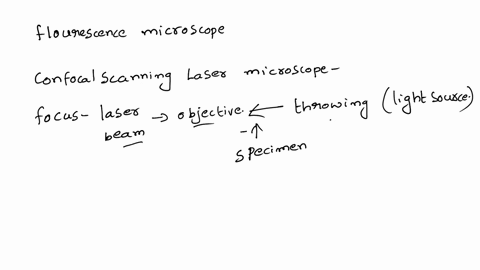 flourescence microscope
Confocal scanning Laser microscope-
focus- laser beam → objective. ← throwing (light source.)
- ↑
specimen